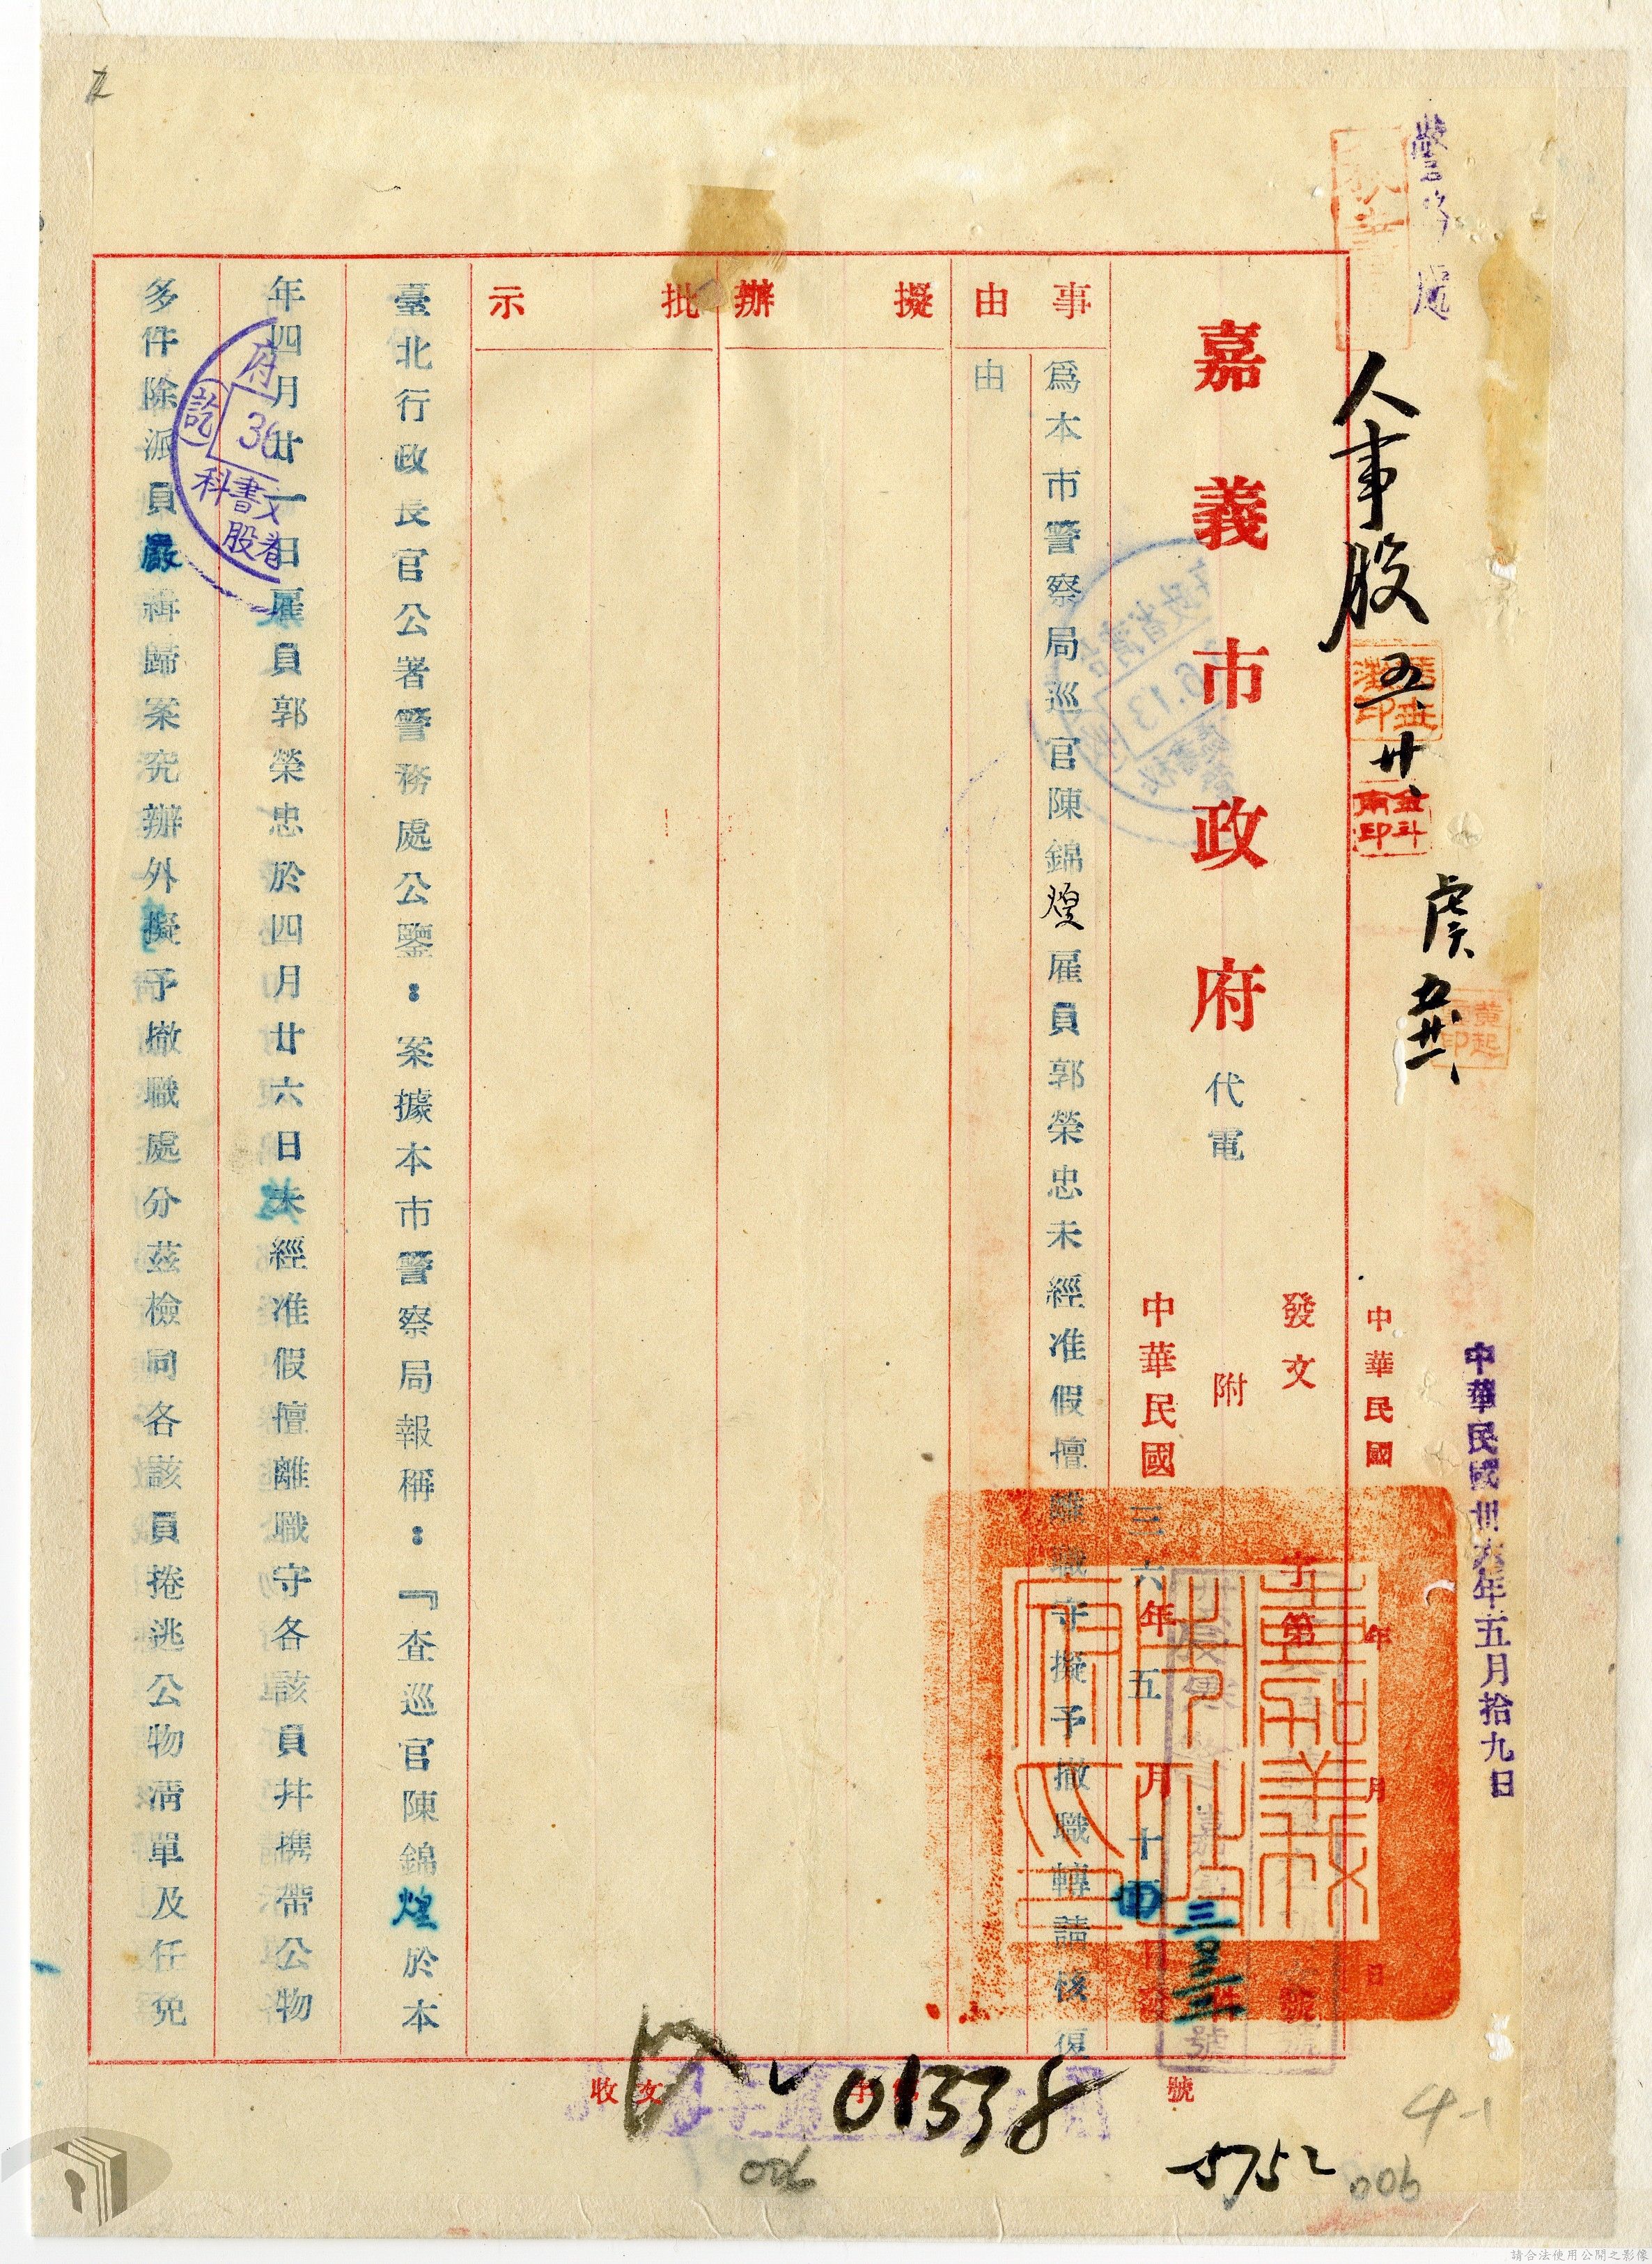 警務處
人事股
五、廿、
中華民國卅六年五月拾九日
中華民國 年 月 日
發文 字第 號
附 件
嘉義市政府 代電
中華民國三六年五月十四日
事由
為本市警察局巡官陳錦煌雇員郭榮忠未經准假擅離職守擬予撤職轉請核復
由
擬辦
批示
臺北行政長官公署警務處公鑒：案據本市警察局報稱：『查巡官陳錦煌於本
年四月廿一日雇員郭榮忠於四月廿六日未經准假擅離職守各該員并携帶公物
多件除派員嚴緝歸案究辦外擬予撤職處分茲檢同各該員捲逃公物清單及任免
收文 字 號
01338
5752
006
4-1
006
請合法使用公開之影像